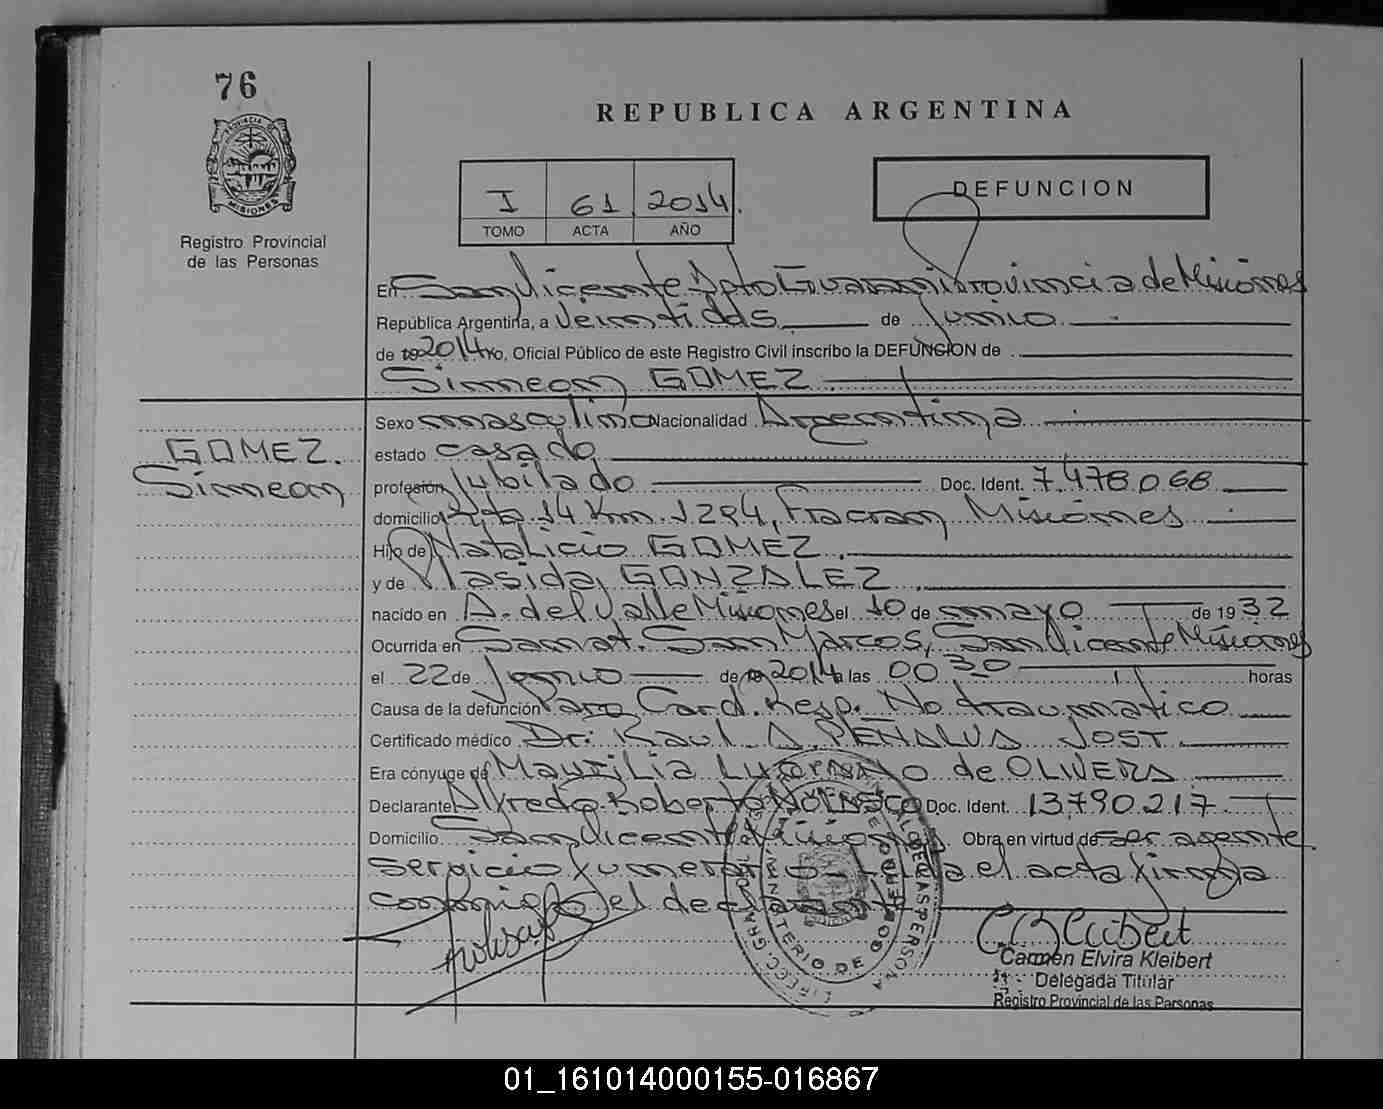 76
REPUBLICA ARGENTINA
PROVINCIA DE
MISIONES
Registro Provincial
de las Personas
I 61 2014
TOMO ACTA AÑO
DEFUNCION
En San Vicente Dpto Guarani Provincia de Misiones
República Argentina, a veintidos de Junio
de 19 2014 Yo, Oficial Público de este Registro Civil inscribo la DEFUNCION de
Simeon GOMEZ
Sexo masculino Nacionalidad Argentina
GOMEZ.
Simeon
estado casado
profesión Jubilado Doc. Ident. 7.478.068
domicilio Ruta 14 Km 1284, Fracran Misiones
Hijo de Natalicio GOMEZ.
y de Plasida GONZALEZ
nacido en A. del Valle Misiones el 10 de mayo de 1932
Ocurrida en Sanat. San Marcos, San Vicente Misiones
el 22 de Junio de 19 2014 a las 00 30 horas
Causa de la defunción Paro Card. Resp. No traumatico
Certificado médico Dr. Raul A. PEÑALVA JOST
Era cónyuge de Maurilia de OLIVERA
Declarante Alfredo Roberto Doc. Ident. 13.790.217
Domicilio San Vicente Misiones Obra en virtud de ser agente
servicio funerario el acta firma
conmigo el declarante
C B Kleibert
Carmen Elvira Kleibert
Delegada Titular
Registro Provincial de las Personas
MINISTERIO DE GOBIERNO
01_161014000155-016867